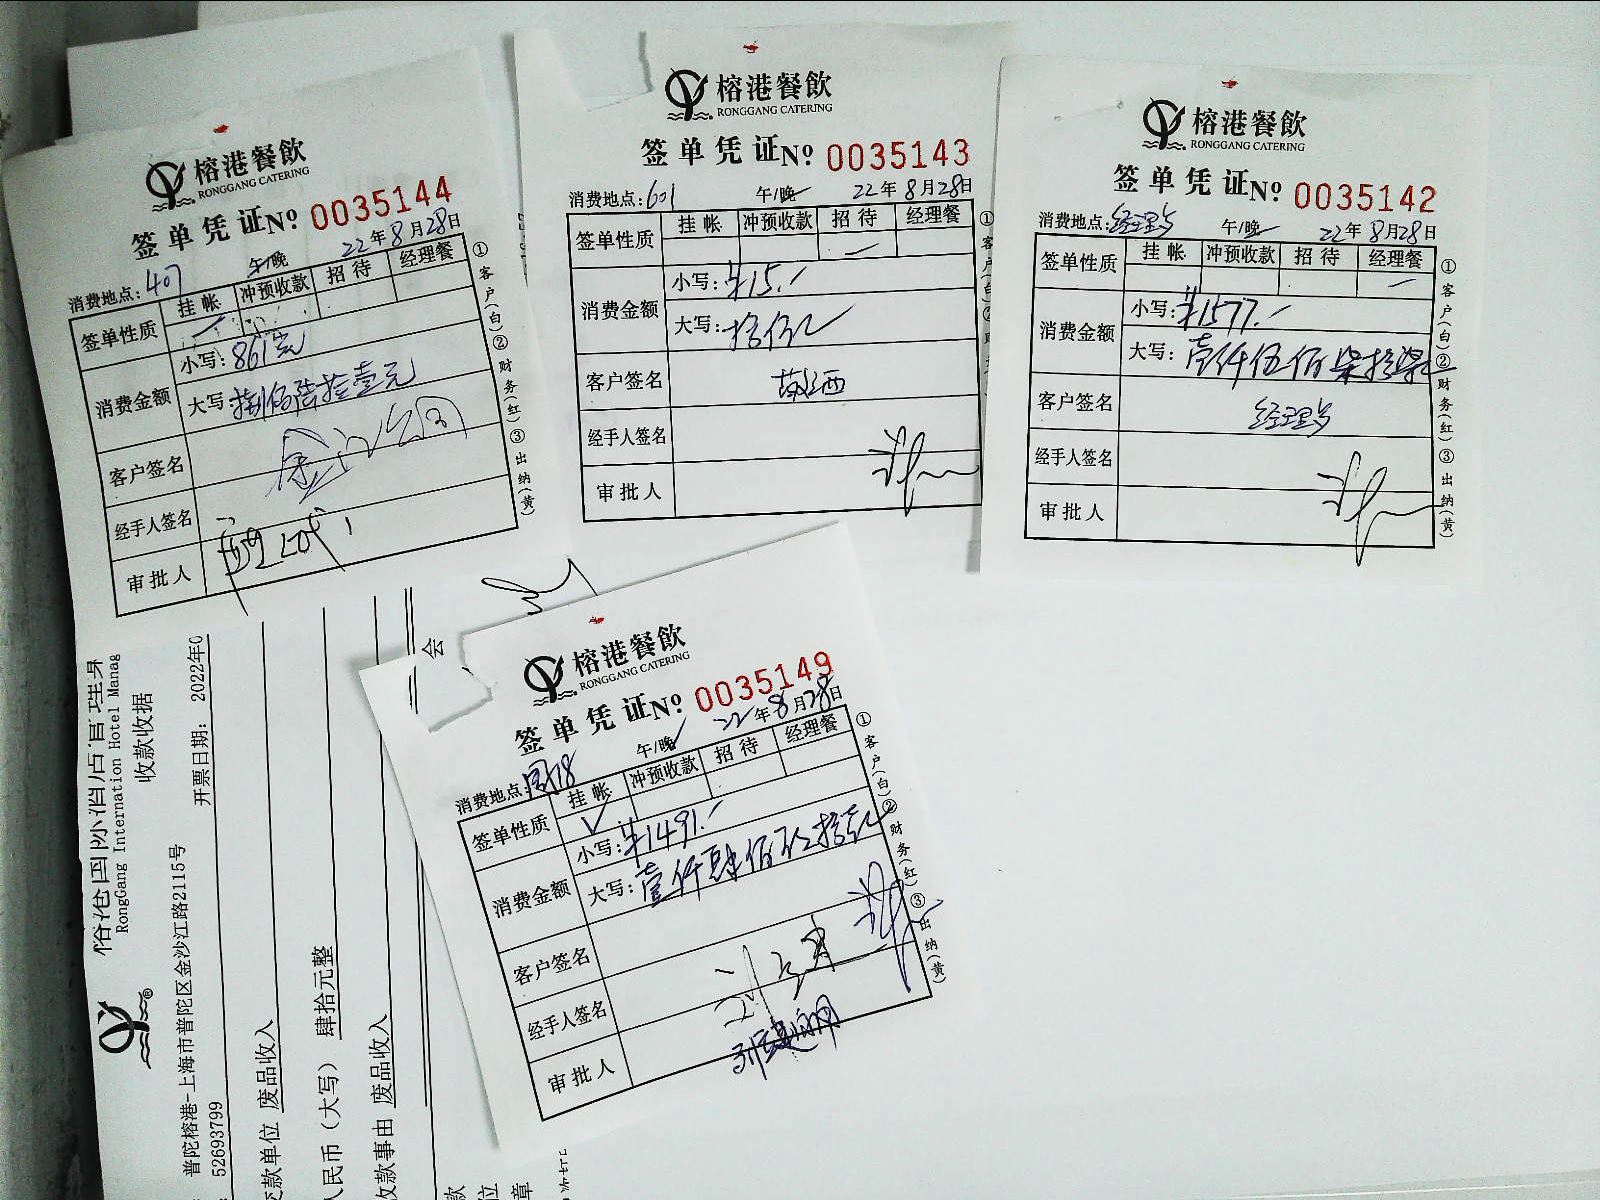 榕港餐飲
RONGGANG CATERING
签单凭证No 0035144
消费地点:407 午/晚 22年8月28日
签单性质 挂帐 冲预收款 招待 经理餐
消费金额 小写:861元
大写:捌佰陆拾壹元
客户签名
经手人签名
审批人
①客户(白)②财务(红)③出纳(黄)
榕港餐飲
RONGGANG CATERING
签单凭证No 0035143
消费地点:601 午/晚 22年8月28日
签单性质 挂帐 冲预收款 招待 经理餐
消费金额 小写:¥15.-
大写:拾伍元
客户签名
经手人签名
审批人
①客户(白)②
榕港餐飲
RONGGANG CATERING
签单凭证No 0035142
消费地点:经理岁 午/晚 22年8月28日
签单性质 挂帐 冲预收款 招待 经理餐
消费金额 小写:¥1577.-
大写:壹仟伍佰柒拾柒元
客户签名 经理岁
经手人签名
审批人
①客户(白)②财务(红)③出纳(黄)
榕港餐飲
RONGGANG CATERING
签单凭证No 0035149
消费地点: 午/晚 22年8月28日
签单性质 挂帐 冲预收款 招待 经理餐
消费金额 小写:¥1491.-
大写:壹仟肆佰玖拾壹元
客户签名
经手人签名
审批人
①客户(白)②财务(红)③出纳(黄)
RongGang International Hotel Manag
收款收据
普陀榕港-上海市普陀区金沙江路2115号
52693799
开票日期: 2022年0
交款单位 废品收入
人民币(大写) 肆拾元整
收款事由 废品收入
会
款
位
章